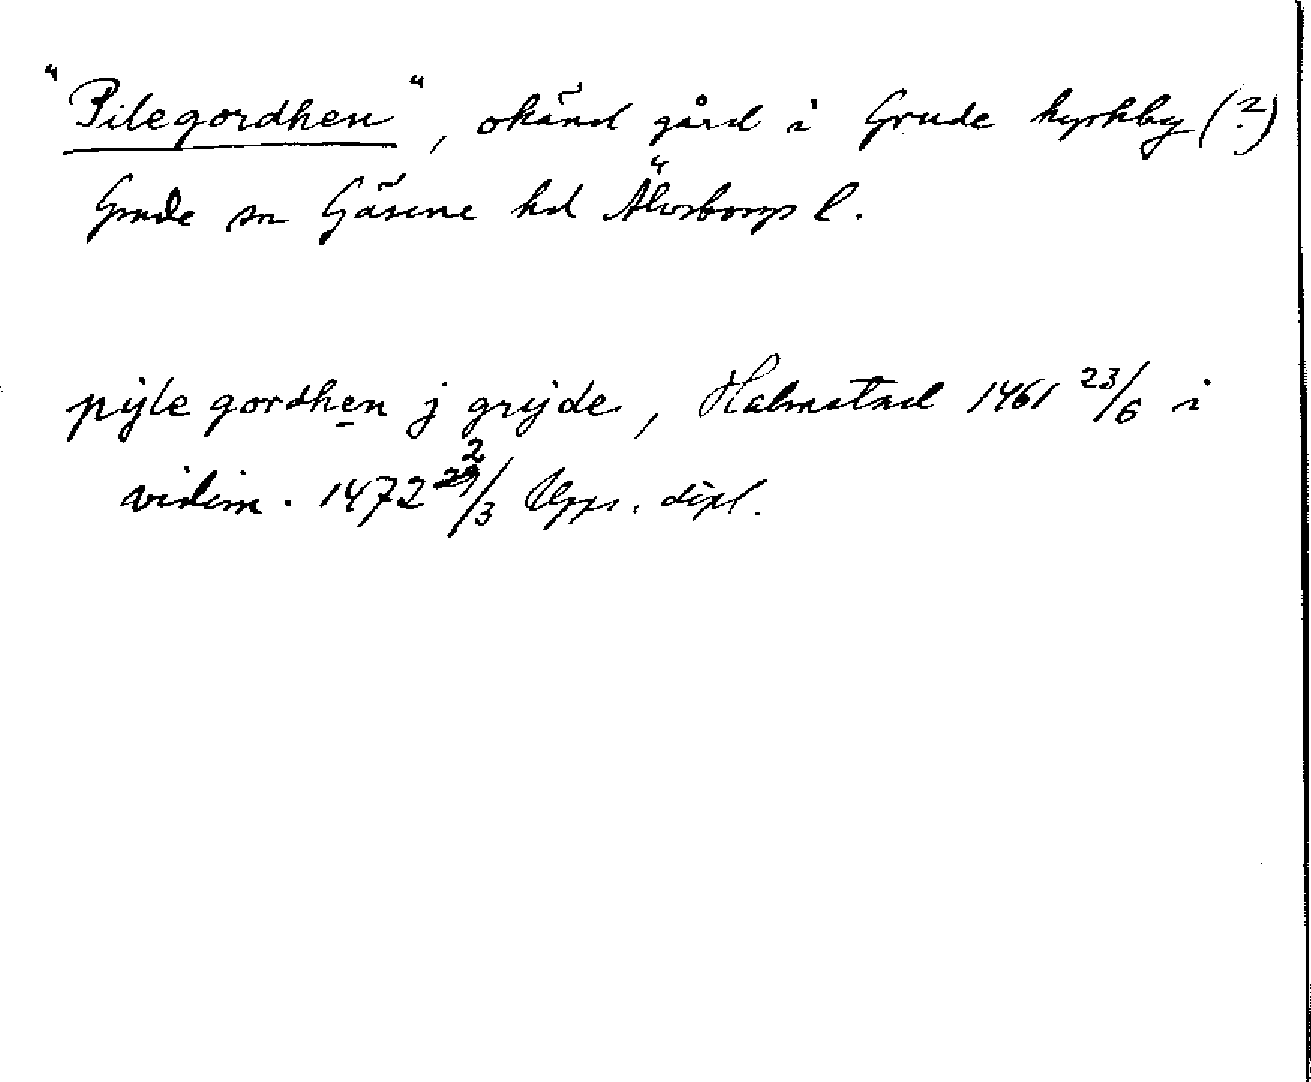 "Pilegordhen", okänd gård i Grude kyrkby (?)
Grude sn Gäsene hd Älvsborgs l.
pÿle gordhen j grÿde, Halmstad 1461 23/6 i
vidim. 1472 2/3 Upps. dipl.